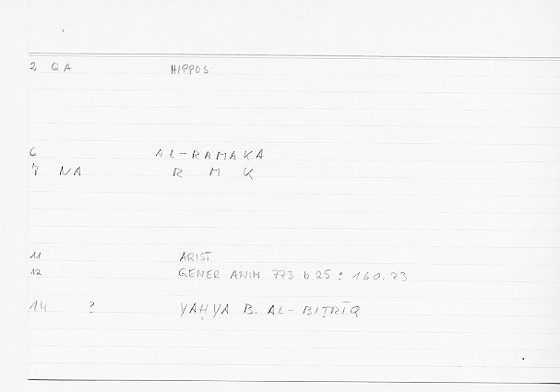 2 QA HIPPOS
6 AL-RAMAKA
7 NA R M K
11 ARIST
12 GENER ANIM 773 b 25 : 160.23
14 ? YAḤYA B. AL-BIṬRĪQ